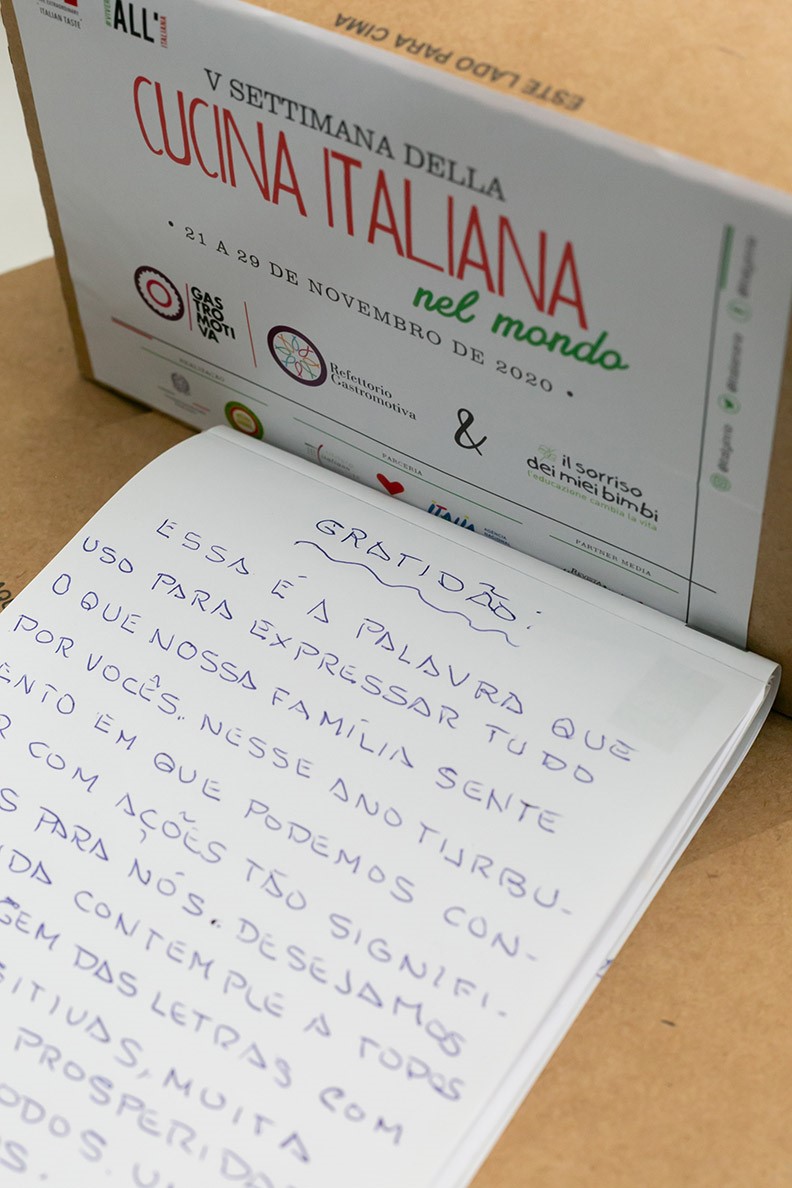 ITALIAN TASTE
ALL'
ITALIANA
ESTE LADO PARA CIMA
V SETTIMANA DELLA
CUCINA ITALIANA
nel mondo
• 21 A 29 DE NOVEMBRO DE 2020 •
GAS
TRO
MOTI
VA
Refettorio
Gastromotiva
&
il sorriso
dei miei bimbi
l'educazione cambia la vita
REALIZAÇÃO
PARCERIA
ITALIA
PARTNER MEDIA
GRATIDÃO:
ESSA É A PALAVRA QUE
USO PARA EXPRESSAR TUDO
O QUE NOSSA FAMÍLIA SENTE
POR VOCÊS. NESSE ANO TURBU-
ENTO EM QUE PODEMOS CON-
R COM AÇÕES TÃO SIGNIFI-
S PARA NÓS. DESEJAMOS
DA CONTEMPLE A TODOS
GEM DAS LETRAS COM
SITIVAS, MUITA
PROSPERIDA
ODOS.
OS.